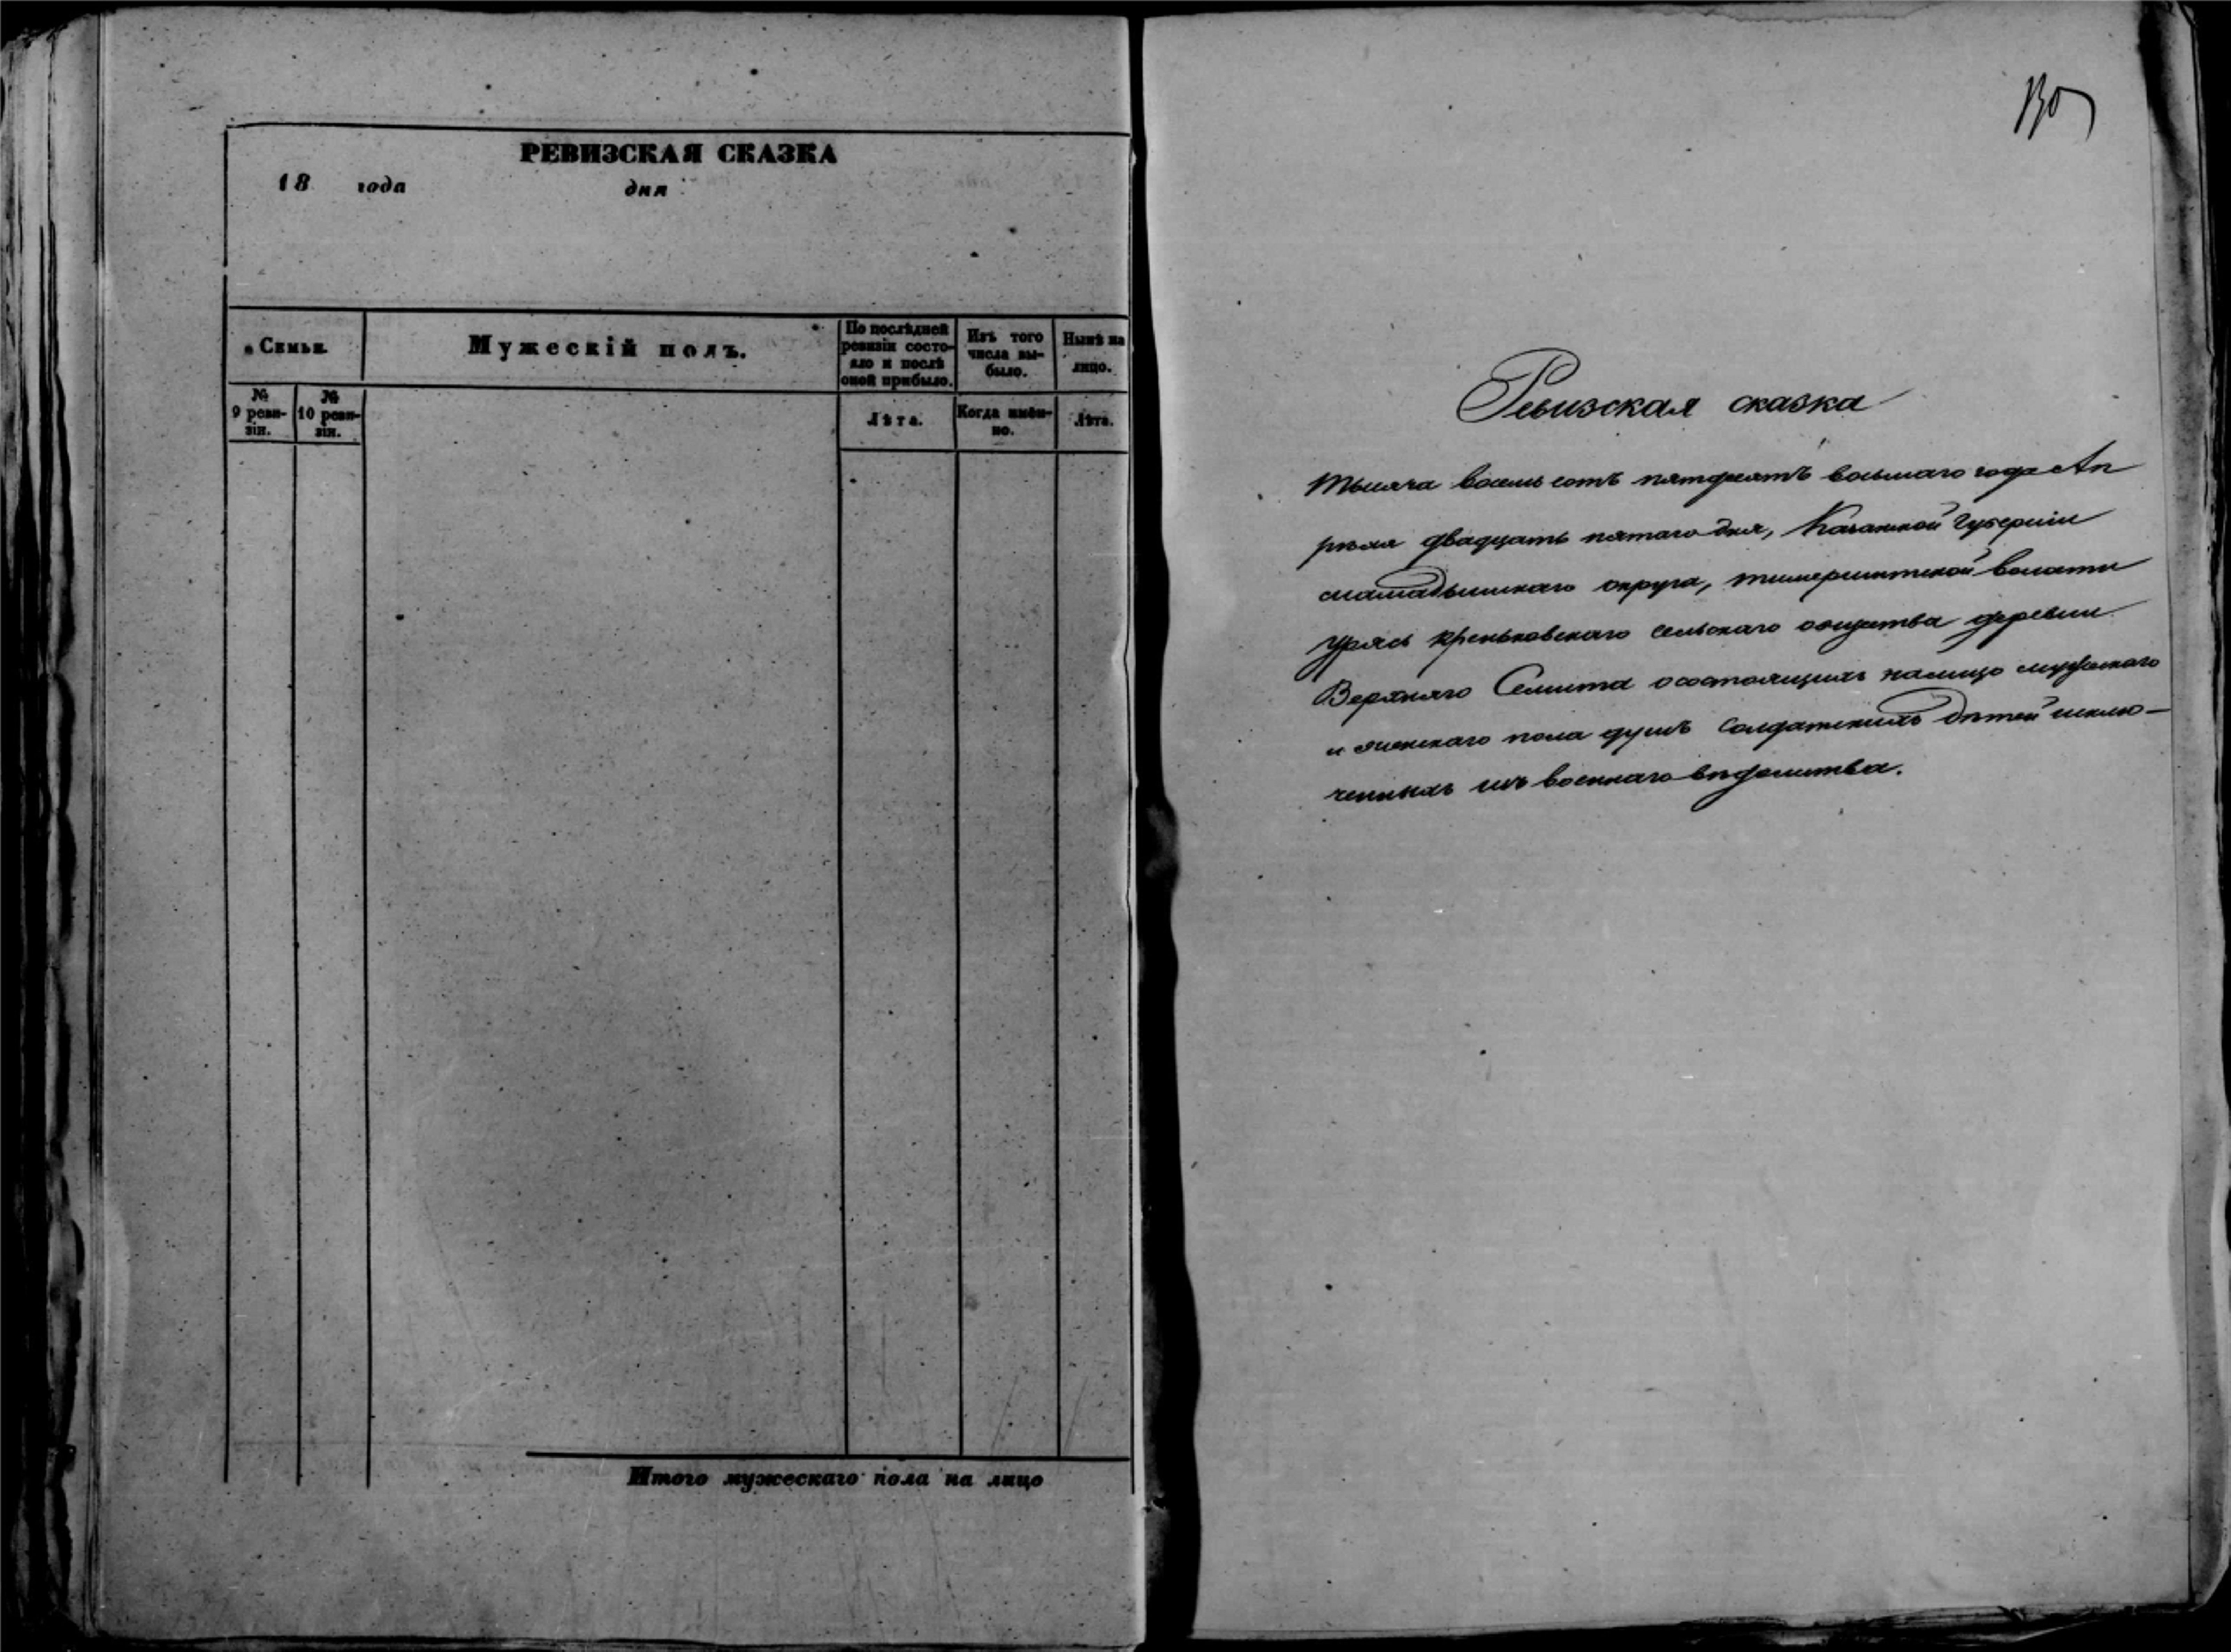 РЕВИЗСКАЯ СКАЗКА
18 года дня
Семьи.
Мужескій полъ.
По послѣдней
ревизіи состо-
яло и послѣ
оной прибыло.
Изъ того
числа вы-
было.
Нынѣ на
лицо.
№
9 реви-
зіи.
№
10 реви-
зіи.
Лѣта.
Когда имен-
но.
Лѣта.
Итого мужескаго пола на лицо
130
Ревизская сказка
Тысяча восемь сотъ пятдесятъ восьмаго года Ап
рѣля двадцать пятаго дня, Казанской Губерніи
мамадышскаго округа, волости
Урясь Креньковскаго сельскаго общества деревни
Верхняго Семита о состоящихъ налицо мужескаго
и женскаго пола душъ солдатскихъ дѣтей исклю-
ченныхъ изъ военнаго вѣдомства.